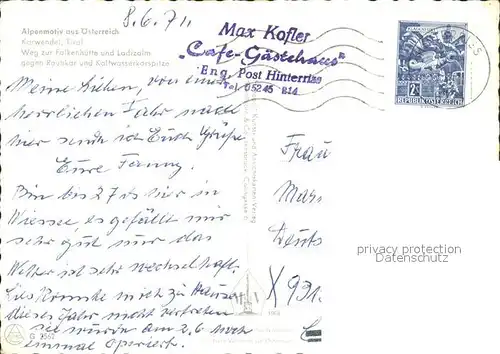 8.6.71
Alpenmotiv aus Österreich
Karwendel, Tirol
Weg zur Falkenhütte und Ladizalm
gegen Kaukar und Kaltwasserkarspitze
Max Kofler
„Cafe-Gästehaus"
Eng, Post Hinterriss
Tel. 05245 214
2S
REPUBLIK ÖSTERREICH
Meine Lieben, von einer
herrlichen Fahr
hier sende ich Euch Grüße
Eure Fanny.
Bin bis 27 ds hier in
Wiessee, es gefällt mir
sehr gut nur das
Wetter ist sehr wechselhaft.
Lies konnte mich zu Hause
dieses Jahr nicht vertreten
sie wurde am 2.6 noch
einmal operiert.
Frau
Mar
Deuts
X 931
privacy protection
Datenschutz
G 3562